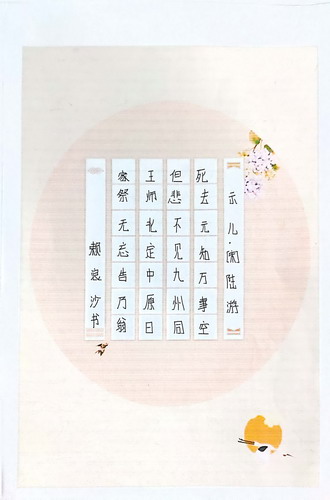 示儿·[南宋]陆游
死去元知万事空
但悲不见九州同
王师北定中原日
家祭无忘告乃翁
赖泉沙书